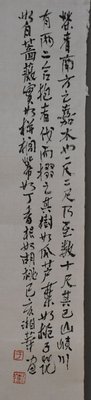 茶者南方之嘉木也一尺二尺乃至數十尺其巴山峽川
有兩人合抱者伐而掇之其樹如瓜蘆葉如梔子花
如白薔薇實如栟櫚蒂如丁香根如胡桃